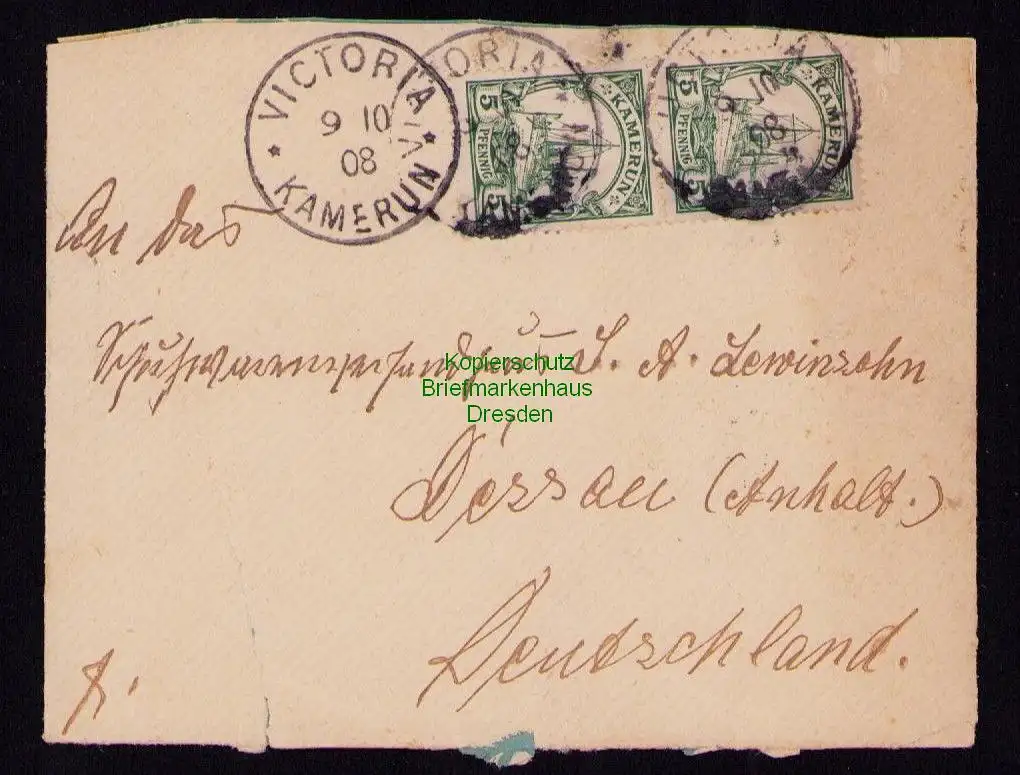 VICTORIA
9 10
08
KAMERUN
ORIA
5
PFENNIG
5
KAMERUN
5
PFENNIG
5
KAMERUN
An das
Schuhwarenversandhaus S. A. Lewinsohn
Dessau (Anhalt.)
Deutschland.
Kopierschutz
Briefmarkenhaus
Dresden